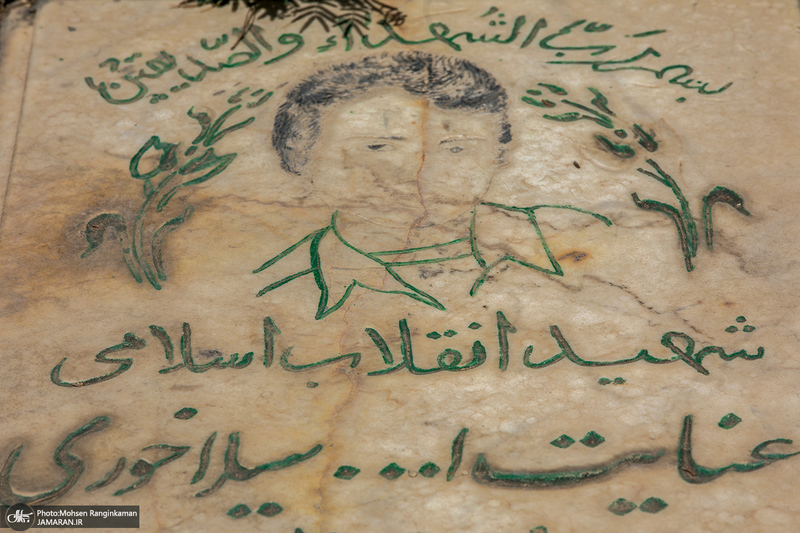 بسم رب الشهداء والصدیقین
شهید انقلاب اسلامی
عنایت ا... سیلاخوری
Photo:Mohsen Ranginkaman
JAMARAN.IR